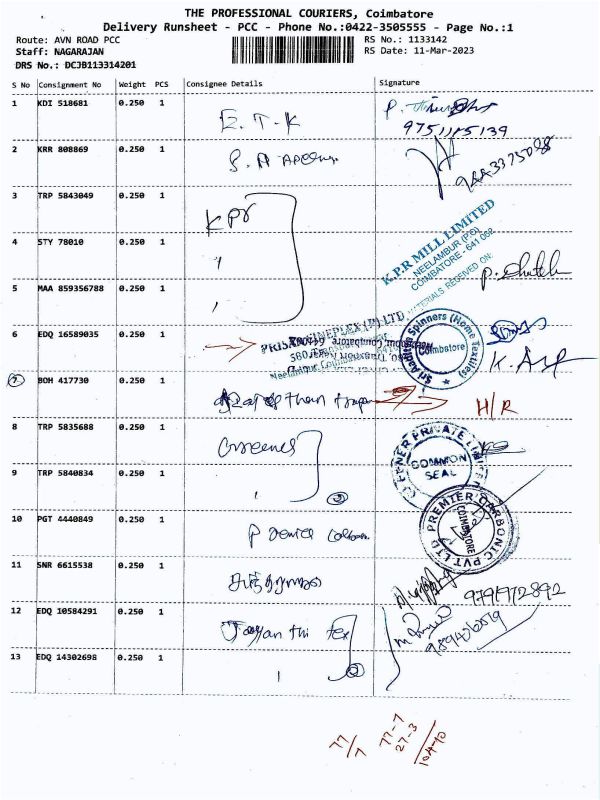 THE PROFESSIONAL COURIERS, Coimbatore
Delivery Runsheet - PCC - Phone No.:0422-3505555 - Page No.:1
Route: AVN ROAD PCC
RS No.: 1133142
Staff: NAGARAJAN
RS Date: 11-Mar-2023
DRS No.: DCJB113314201
S No Consignment No Weight PCS Consignee Details Signature
1 KDI 518681 0.250 1
E. T. K
9751115139
2 KRR 808869 0.250 1
3 TRP 5843049 0.250 1
KPR
K.P.R MILL LIMITED
NEELAMBUR (P.O)
COIMBATORE - 641 062
MATERIALS RECEIVED ON:
4 STY 78010 0.250 1
5 MAA 859356788 0.250 1
6 EDQ 16589035 0.250 1
Spinners (Home Textiles)
Coimbatore
7 BOH 417730 0.250 1
H/R
8 TRP 5835688 0.250 1
PRIVATE LIMITED
COMMON
SEAL
9 TRP 5840834 0.250 1
2
10 PGT 4440849 0.250 1
PREMIER CARBONIC PVT LTD
COIMBATORE
11 SNR 6615538 0.250 1
9791972892
12 EDQ 10584291 0.250 1
Jayanthi Tex
13 EDQ 14302698 0.250 1
2
77/7
77-7
27-3
104-10